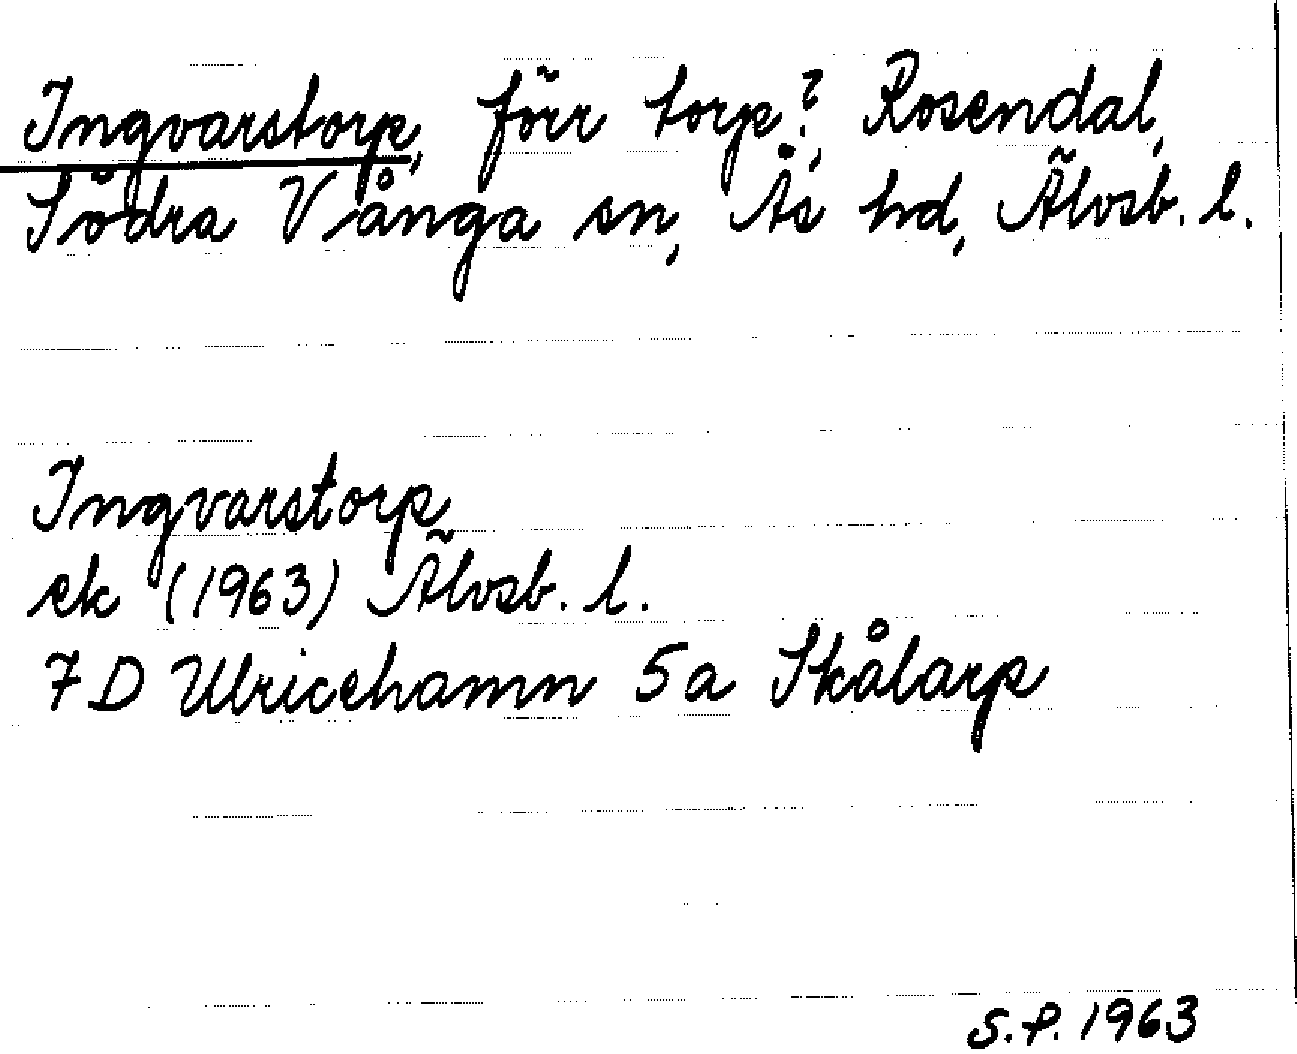 Ingvarstorp, förr torp?, Rosendal,
Södra Vånga sn, Ås hd, Älvsb. l.
Ingvarstorp
ek (1963) Älvsb. l.
7 D Ulricehamn 5a Skålarp
S.P. 1963